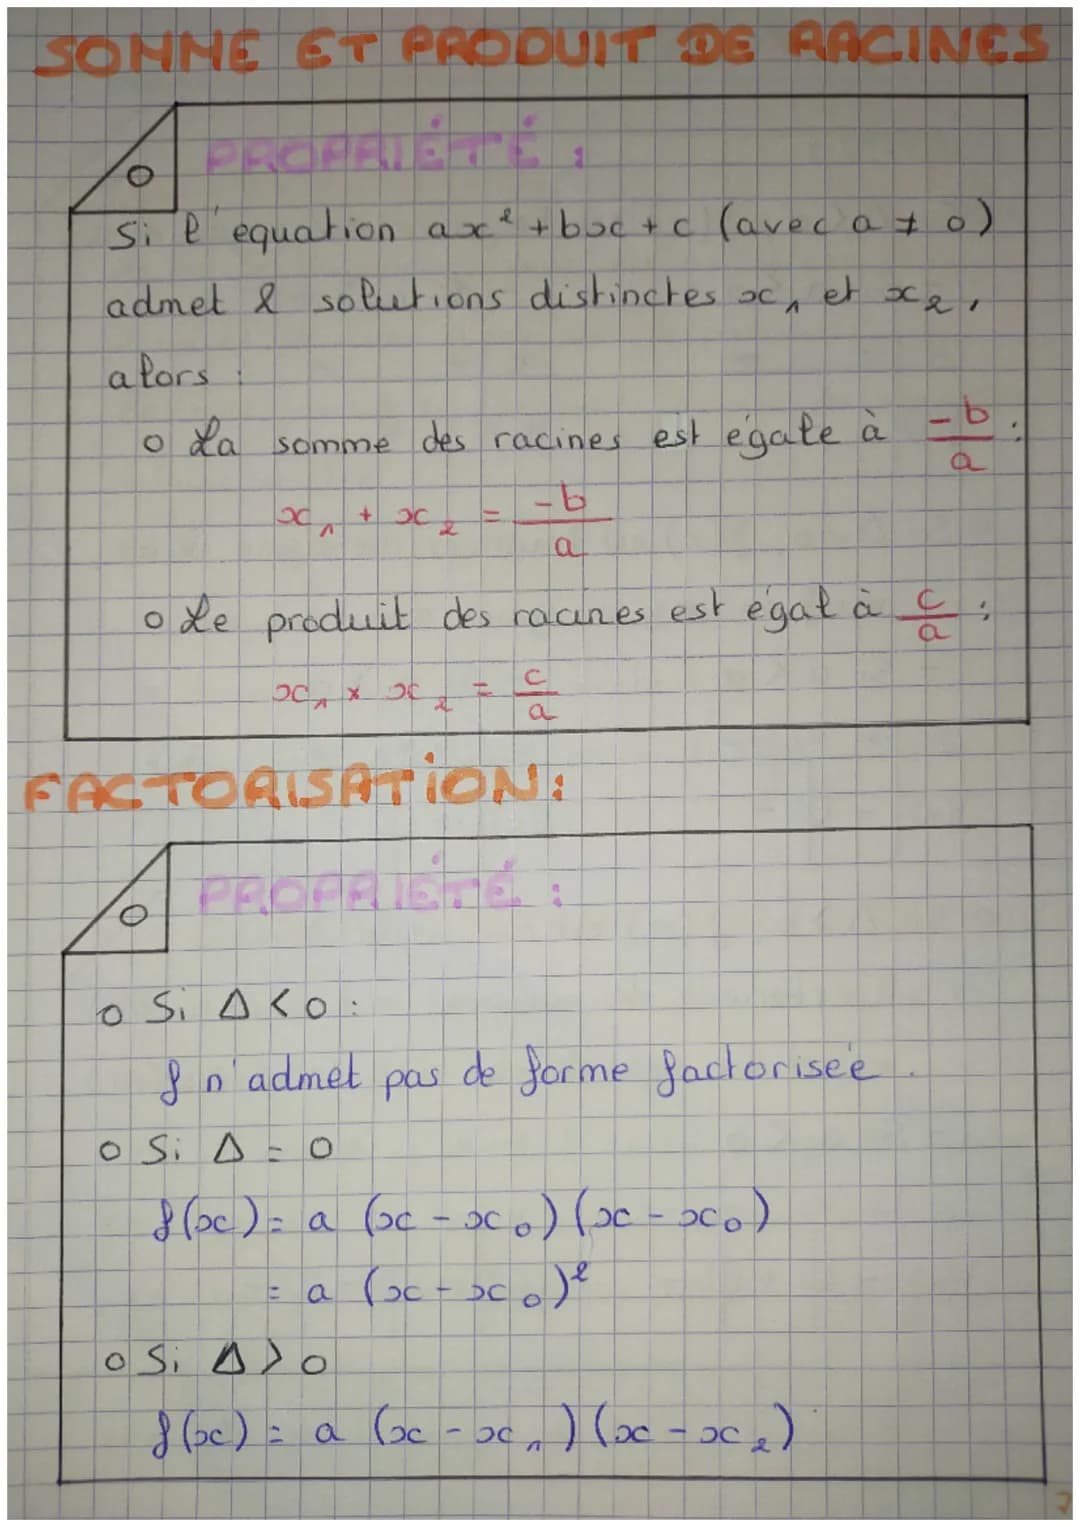 SOMME ET PRODUIT DE RACINES
PROPRIÉTÉ :
Si l'équation ax² + bx + c (avec a ≠ 0)
admet 2 solutions distinctes x₁ et x₂,
alors :
o La somme des racines est égale à -b/a :
x₁ + x₂ = -b/a
o Le produit des racines est égal à c/a :
x₁ × x₂ = c/a
FACTORISATION :
PROPRIÉTÉ :
o Si Δ < 0 :
f n'admet pas de forme factorisée.
o Si Δ = 0
f(x) = a (x - x₀) (x - x₀)
= a (x - x₀)²
o Si Δ > 0
f(x) = a (x - x₁) (x - x₂)
7